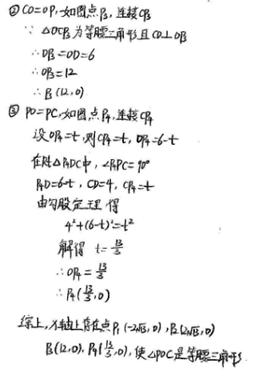 ② CO=OP,如图点P₃,连接CP₃
∵ △OCP₃为等腰三角形且CD⊥OP₃
∴DP₃=OD=6
∴OP₃=12
∴P₃(12,0)
③ PO=PC,如图点P₄,连接CP₄
设OP₄=t,则CP₄=t,DP₄=6-t
在Rt△P₄DC中,∠P₄DC=90°
P₄D=6-t,CD=4,CP₄=t
由勾股定理得
4²+(6-t)²=t²
解得 t=13/3
∴OP₄=13/3
∴P₄(13/3,0)
综上,x轴上存在点P₁(-2√13,0),P₂(2√13,0)
P₃(12,0),P₄(13/3,0),使△POC是等腰三角形.